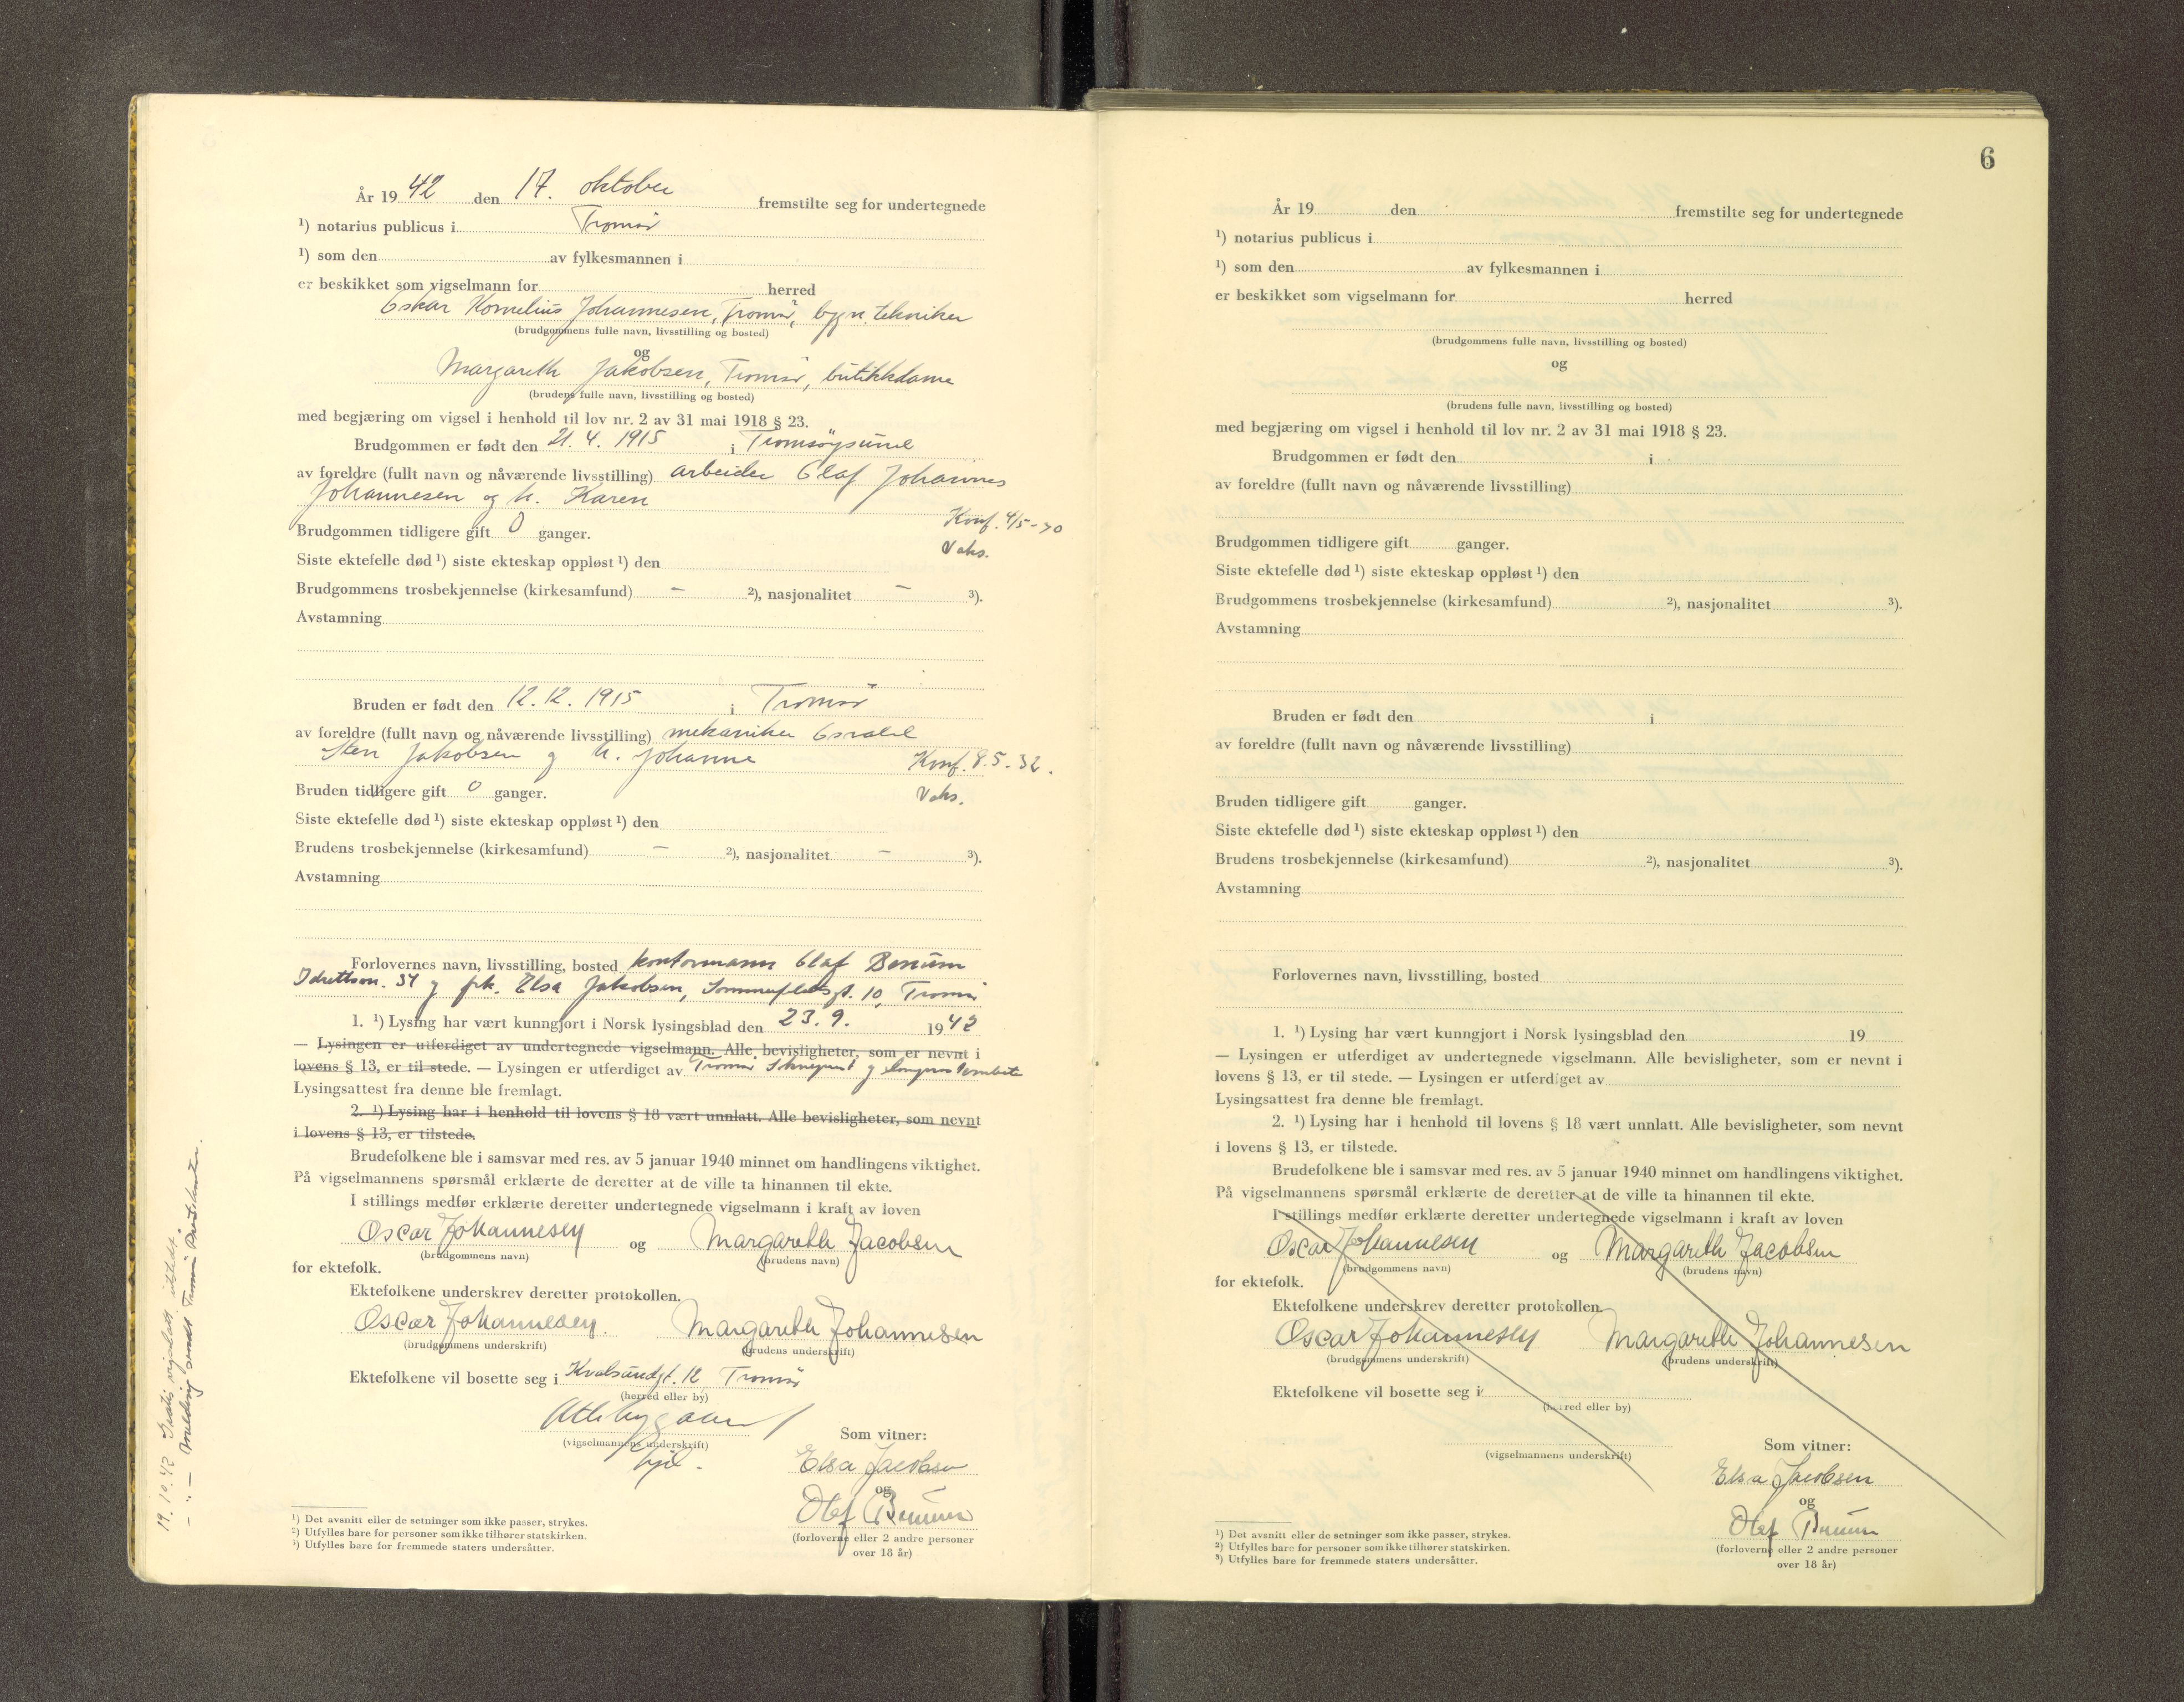 År 19 42 den 17. oktober fremstilte seg for undertegnede
¹) notarius publicus i Tromsø
¹) som den av fylkesmannen i
er beskikket som vigselmann for herred
Oskar Kornelius Johannesen, Tromsø, bygn. tekniker
(brudgommens fulle navn, livsstilling og bosted)
og
Margareth Jakobsen, Tromsø, butikkdame
(brudens fulle navn, livsstilling og bosted)
med begjæring om vigsel i henhold til lov nr. 2 av 31 mai 1918 § 23.
Brudgommen er født den 21. 4. 1915 i Tromsøysund
av foreldre (fullt navn og nåværende livsstilling) arbeider Olaf Johannes
Johannesen og h. Karen
Konf. 4/5-30
Brudgommen tidligere gift 0 ganger.
Vaks.
Siste ektefelle død ¹) siste ekteskap oppløst ¹) den
Brudgommens trosbekjennelse (kirkesamfund) – ²), nasjonalitet – ³).
Avstamning
Bruden er født den 12. 12. 1915 i Tromsø
av foreldre (fullt navn og nåværende livsstilling) mekaniker
Sten Jakobsen og h. Johanne Konf. 8.5-32.
Bruden tidligere gift 0 ganger. Vaks.
Siste ektefelle død ¹) siste ekteskap oppløst ¹) den
Brudens trosbekjennelse (kirkesamfund) – ²), nasjonalitet – ³).
Avstamning
Forlovernes navn, livsstilling, bosted kontormann Olaf
34 og frk. Elsa Jakobsen, 10, Tromsø
1. ¹) Lysing har vært kunngjort i Norsk lysingsblad den 23. 9. 1942
— Lysingen er utferdiget av undertegnede vigselmann. Alle bevisligheter, som er nevnt i
lovens § 13, er til stede. — Lysingen er utferdiget av Tromsø og
Lysingsattest fra denne ble fremlagt.
2. ¹) Lysing har i henhold til lovens § 18 vært unnlatt. Alle bevisligheter, som nevnt
i lovens § 13, er tilstede.
Brudefolkene ble i samsvar med res. av 5 januar 1940 minnet om handlingens viktighet.
På vigselmannens spørsmål erklærte de deretter at de ville ta hinannen til ekte.
I stillings medfør erklærte deretter undertegnede vigselmann i kraft av loven
Oscar Johannesen og Margareth Jacobsen
(brudgommens navn) (brudens navn)
for ektefolk.
Ektefolkene underskrev deretter protokollen.
Oscar Johannesen. Margareth Johannesen
(brudgommens underskrift) (brudens underskrift)
Ektefolkene vil bosette seg i Kvalsundgt. 12, Tromsø
(herred eller by)
(vigselmannens underskrift)
Som vitner:
Elsa Jacobsen
og
(forloverne eller 2 andre personer
over 18 år)
¹) Det avsnitt eller de setninger som ikke passer, strykes.
²) Utfylles bare for personer som ikke tilhører statskirken.
³) Utfylles bare for fremmede staters undersåtter.
19.10.42 Gratis vigselatt. utstedt.
– " – melding sendt Tromsø
6
År 19 den fremstilte seg for undertegnede
¹) notarius publicus i
¹) som den av fylkesmannen i
er beskikket som vigselmann for herred
(brudgommens fulle navn, livsstilling og bosted)
og
(brudens fulle navn, livsstilling og bosted)
med begjæring om vigsel i henhold til lov nr. 2 av 31 mai 1918 § 23.
Brudgommen er født den i
av foreldre (fullt navn og nåværende livsstilling)
Brudgommen tidligere gift ganger.
Siste ektefelle død ¹) siste ekteskap oppløst ¹) den
Brudgommens trosbekjennelse (kirkesamfund) ²), nasjonalitet ³).
Avstamning
Bruden er født den i
av foreldre (fullt navn og nåværende livsstilling)
Bruden tidligere gift ganger.
Siste ektefelle død ¹) siste ekteskap oppløst ¹) den
Brudens trosbekjennelse (kirkesamfund) ²), nasjonalitet ³).
Avstamning
Forlovernes navn, livsstilling, bosted
1. ¹) Lysing har vært kunngjort i Norsk lysingsblad den 19
— Lysingen er utferdiget av undertegnede vigselmann. Alle bevisligheter, som er nevnt i
lovens § 13, er til stede. — Lysingen er utferdiget av
Lysingsattest fra denne ble fremlagt.
2. ¹) Lysing har i henhold til lovens § 18 vært unnlatt. Alle bevisligheter, som nevnt
i lovens § 13, er tilstede.
Brudefolkene ble i samsvar med res. av 5 januar 1940 minnet om handlingens viktighet.
På vigselmannens spørsmål erklærte de deretter at de ville ta hinannen til ekte.
I stillings medfør erklærte deretter undertegnede vigselmann i kraft av loven
Oscar Johannesen og Margareth Jacobsen
(brudgommens navn) (brudens navn)
for ektefolk.
Ektefolkene underskrev deretter protokollen.
Oscar Johannesen Margareth Johannesen
(brudgommens underskrift) (brudens underskrift)
Ektefolkene vil bosette seg i
(herred eller by)
(vigselmannens underskrift)
Som vitner:
Elsa Jacobsen
og
(forloverne eller 2 andre personer
over 18 år)
¹) Det avsnitt eller de setninger som ikke passer, strykes.
²) Utfylles bare for personer som ikke tilhører statskirken.
³) Utfylles bare for fremmede staters undersåtter.